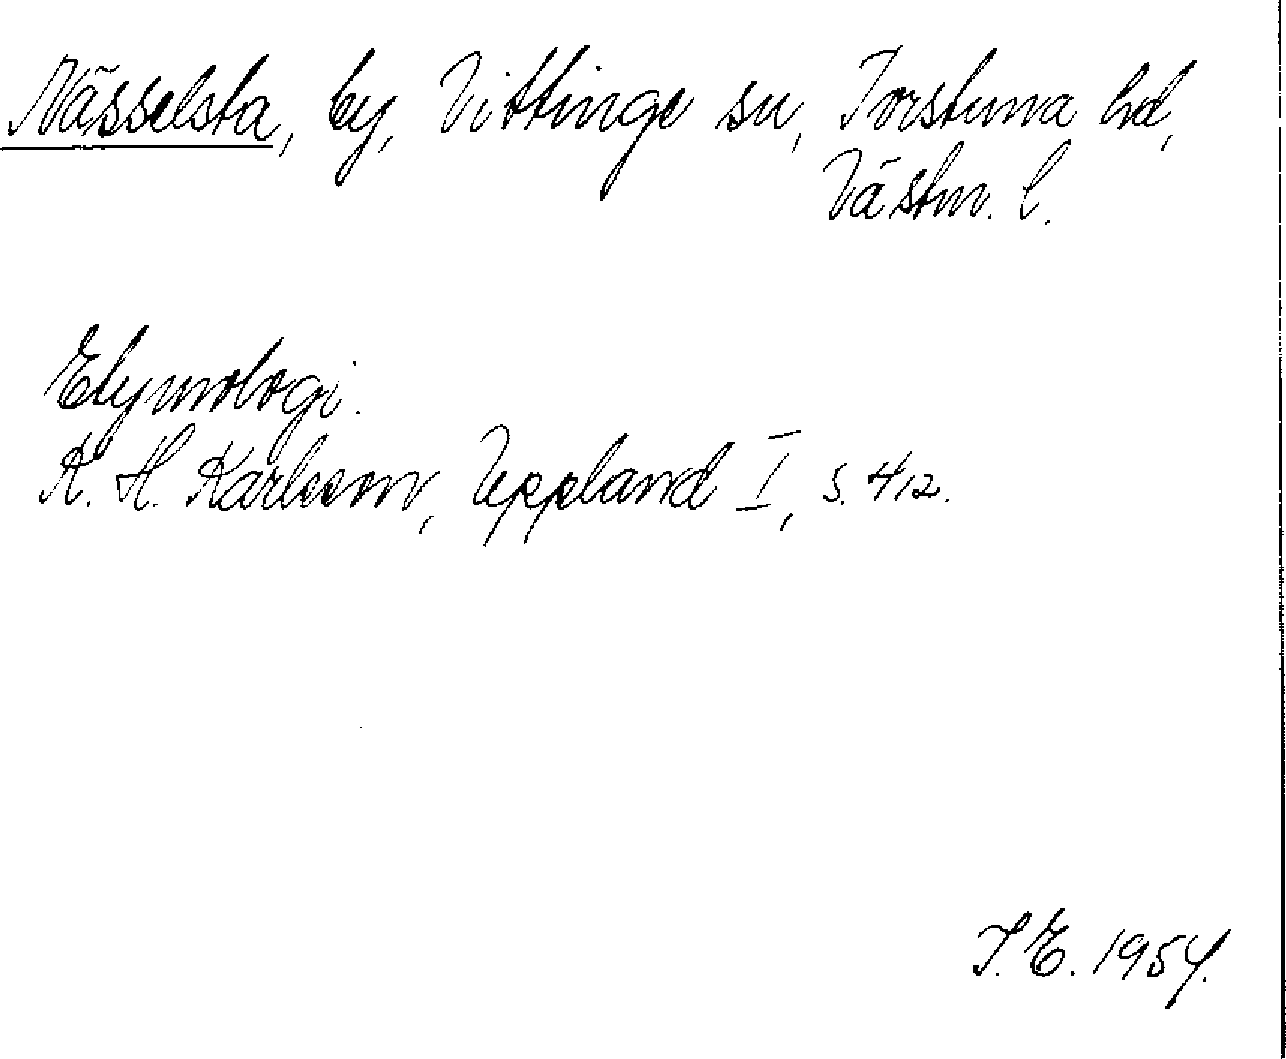 Nässelsta, by, Vittinge sn, Torstuna hd,
Västm. l.
Etymologi.
K. H. Karlsson, Uppland I, s. 412.
I. E. 1954.